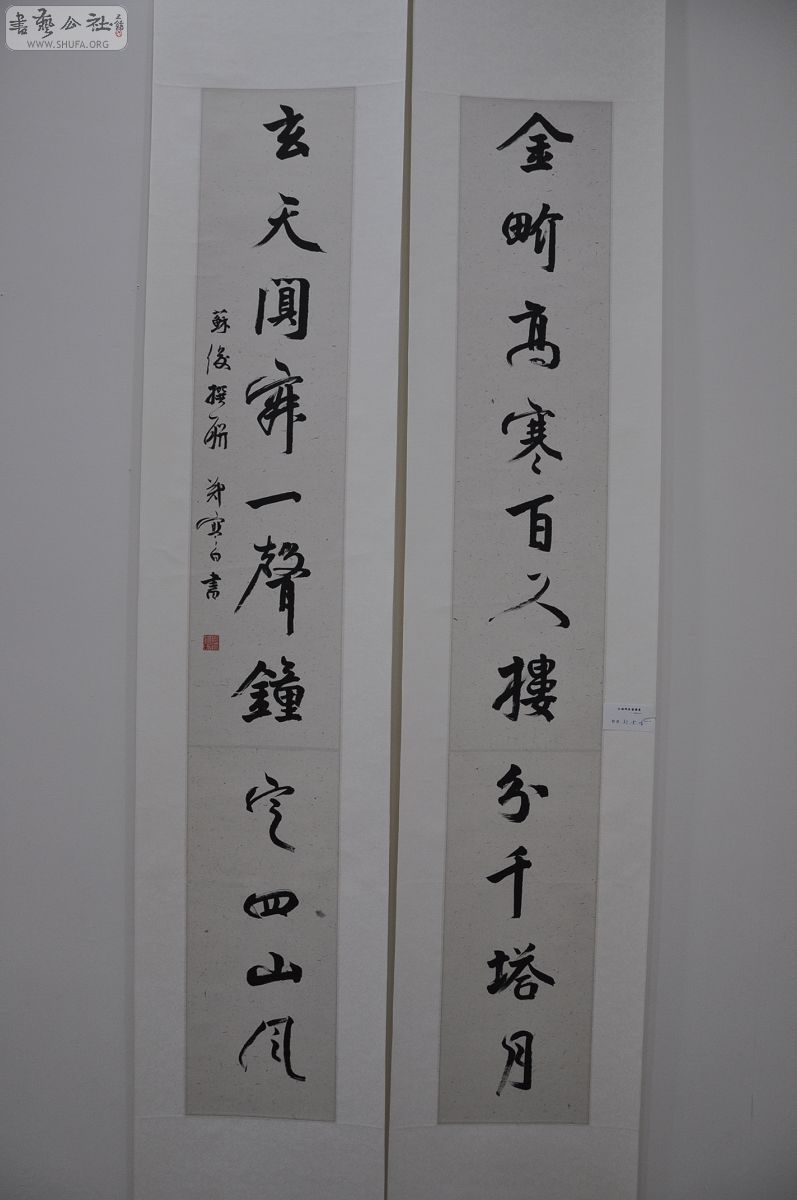 書藝公社
WWW.SHUFA.ORG
金畍高寒百尺樓分千塔月
玄天闃寂一聲鐘定四山風
蘇俊撰聯 白書